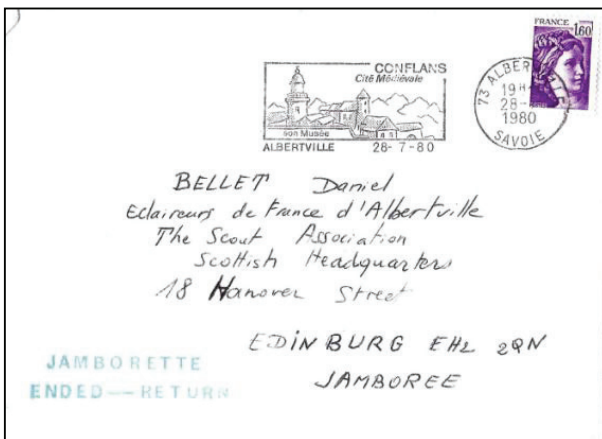 FRANCE
1,60
CONFLANS
Cité Médiévale
son Musée
ALBERTVILLE 28-7-80
73 ALBER
19H
28-
1980
SAVOIE
BELLET Daniel
Eclaireurs de France d'Albertville
The Scout Association
Scottish Headquarters
18 Hanover Street
EDINBURG EH2 2QN
JAMBOREE
JAMBORETTE
ENDED — RETURN